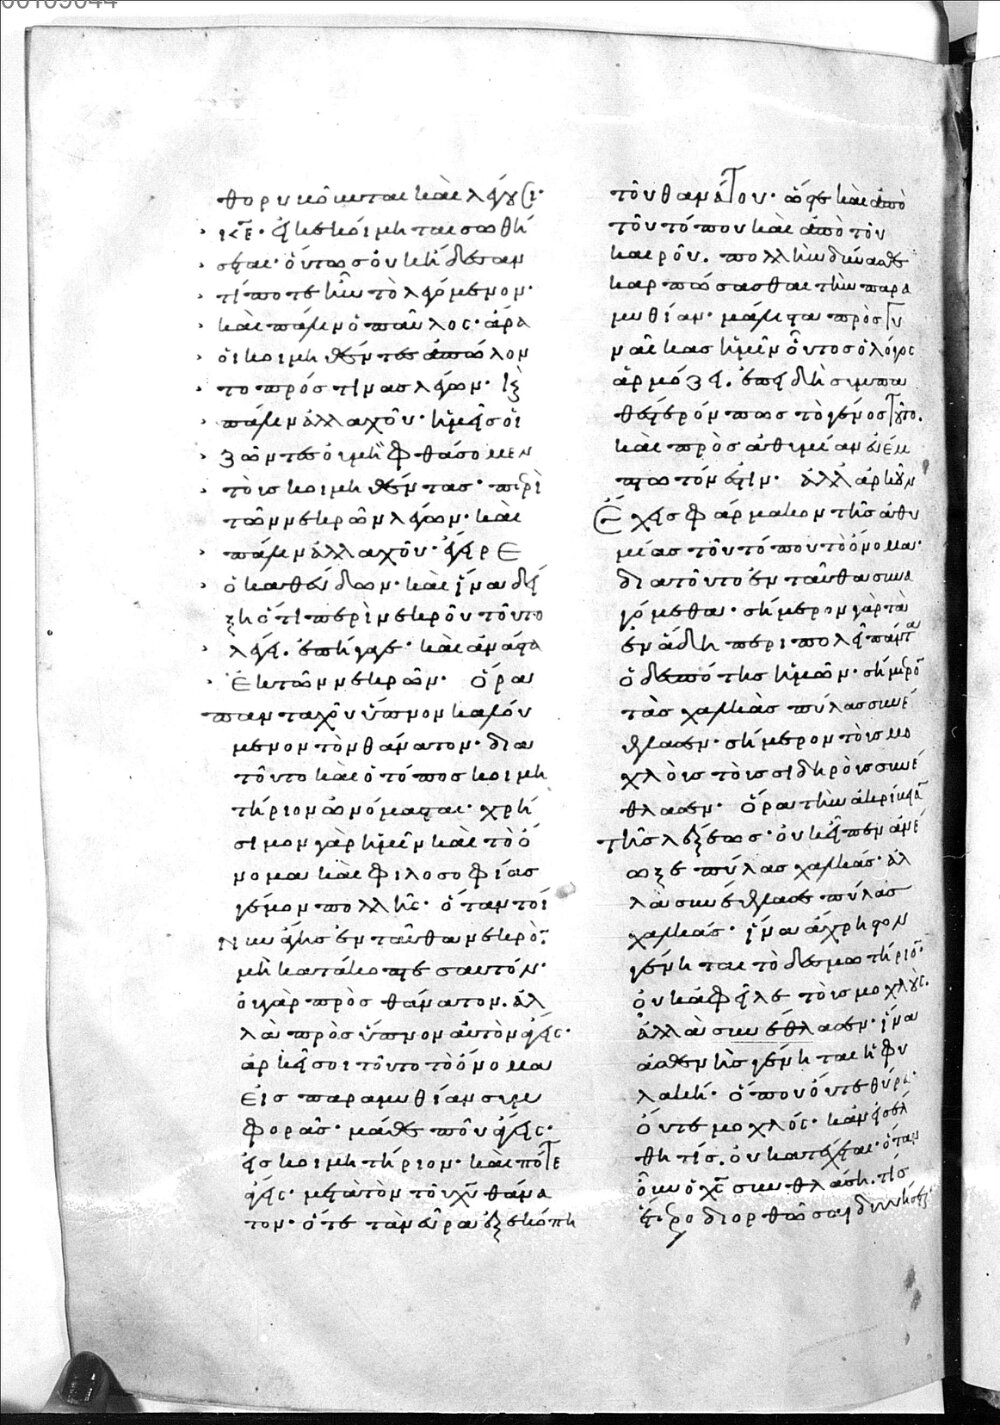 θορυβοῦνται καὶ λέγουσι·
κε· εἰ κεκοίμηται σωθή
σεται· οὕτως οὐκ ἤδεισαν
τί ποτε ἦν τὸ λεγόμενον·
καὶ πάλιν ὁ παῦλος· ἄρα
οἱ κοιμηθέντες ἀπώλον
το πρός τινας λέγων·
πάλιν ἀλλαχοῦ· ἡμεῖς οἱ
ζῶντες οὐ μὴ φθάσομεν
τοὺς κοιμηθέντας· περὶ
τῶν νεκρῶν λέγων· καὶ
πάλιν ἀλλαχοῦ· ἔγειρε
ὁ καθεύδων· καὶ ἵνα δεί
ξῃ ὅτι περὶ νεκροῦ τοῦτο
λέγει· ἐπήγαγε· καὶ ἀνάστα
ἐκ τῶν νεκρῶν· ὅρα
πανταχοῦ ὕπνον καλού
μενον τὸν θάνατον· δια
τοῦτο καὶ ὁ τόπος κοιμη
τήριον ὠνόμασται· χρή
σιμον γὰρ ἡμῖν καὶ τὸ ὄ
νομα καὶ φιλοσοφίας
γέμον πολλῆς· ὅταν τοί
νυν ἄγῃς ἐνταῦθα νεκρό·
μὴ κατάκοπτε σαυτόν·
οὐ γὰρ πρὸς θάνατον· ἀλ
λὰ πρὸς ὕπνον αὐτὸν ἄγεις·
ἀρκεῖ σοι τοῦτο τὸ ὄνομα
εἰς παραμυθίαν συμ
φορᾶς· μάθε ποῦ ἄγεις·
εἰς κοιμητήριον· καὶ πότε
ἄγεις· μετὰ τὸν τοῦ χυ θάνα
τον· ὅτε τὰ νεῦρα ἐξεκόπη
τοῦ θανάτου· ὥστε καὶ ἀπὸ
τοῦ τόπου καὶ ἀπὸ τοῦ
καιροῦ· πολλὴν δύνασθε
καρπώσασθαι τὴν παρα
μυθίαν· μάλιστα πρὸς γυ
ναῖκας ἡμῖν οὗτος ὁ λόγος
ἁρμόζει· ἐπειδὴ συμπα
θέστερόν πως τὸ γένος τοῦτο·
καὶ πρὸς ἀθυμίαν εὐέμ
πτωτόν ἐστιν· ἀλλ ἀρκοῦν
ἔχεις φάρμακον τῆς ἀθυ
μίας τοῦ τόπου τὸ ὄνομα·
διατοῦτο ἐνταῦθα συνα
γόμεθα· σήμερον γὰρ τὰ
ἐν ἅδῃ περιπολεῖ πάντα
ὁ δεσπότης ἡμῶν· σήμερον
τὰς χαλκὰς πύλας συνέ
θλασεν· σήμερον τοὺς μο
χλοὺς τοὺς σιδηροῦς συνέ
θλασεν· ὅρα τὴν ἀκρίβειαν
τῆς λέξεως· οὐκ εἶπεν ἀνέ
ῳξε πύλας χαλκάς· ἀλ
λὰ συνέθλασε πύλας
χαλκάς· ἵνα ἄχρηστον
γένηται τὸ δεσμωτήριον·
οὐκ ἀφεῖλε τοὺς μοχλούς·
ἀλλὰ συνέθλασεν· ἵνα
ἀσθενὴς γένηται ἡ φυ
λακή· ὅπου οὔτε θύρα·
οὔτε μοχλός· κἂν εἰσέλ
θῃ τίς· οὐ κατέχεται· ὅταν
οὖν ὁ χς συνθλάσῃ· τίς
ἕτερο διορθῶσαι δυνήσεται